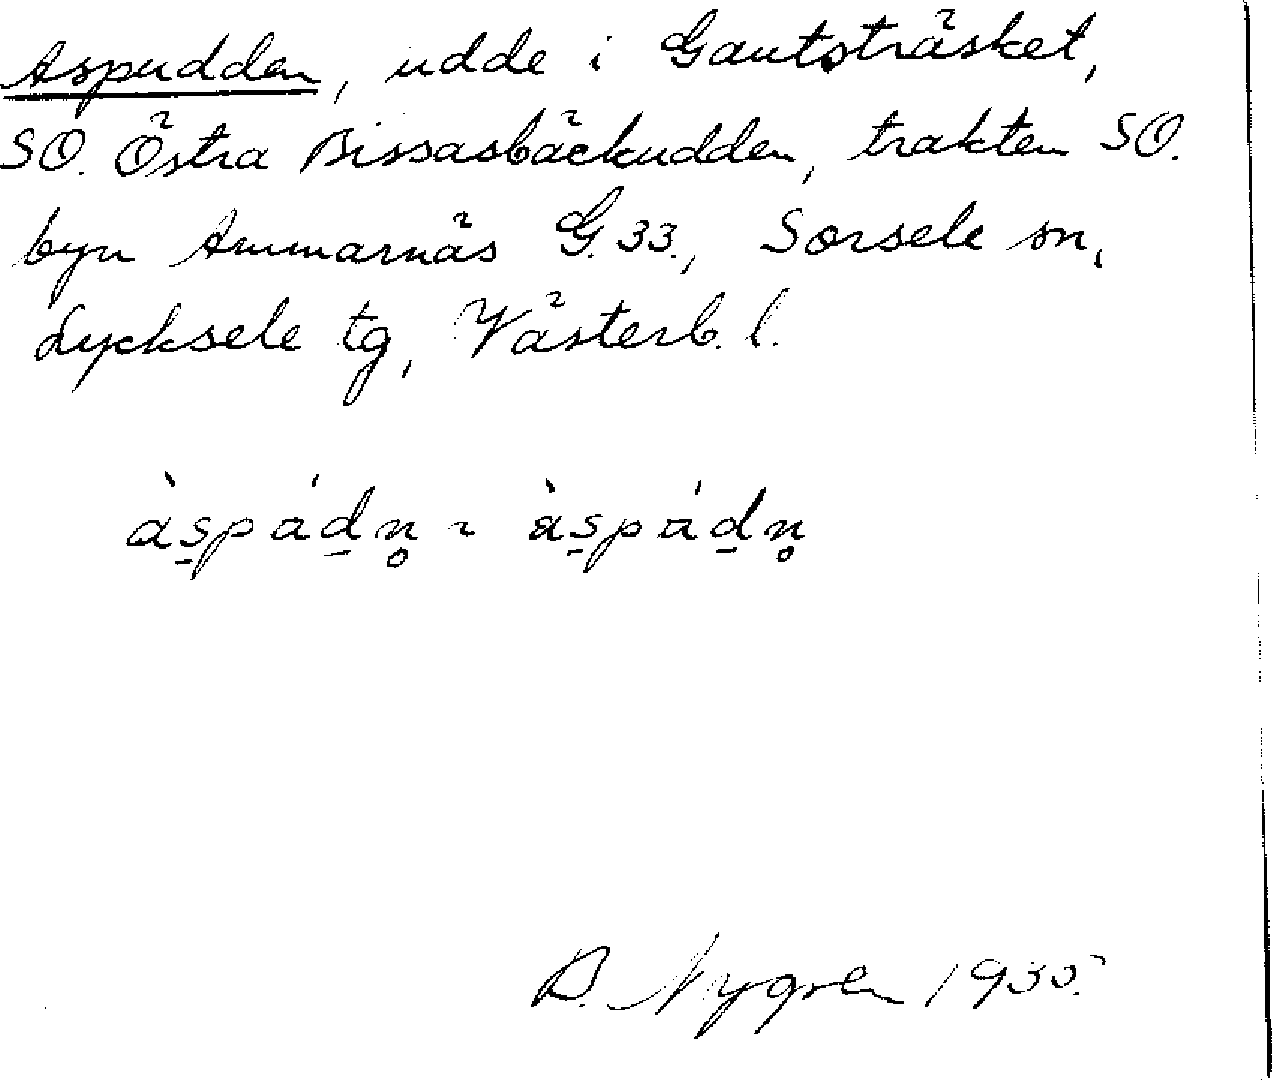 Aspudden, udde i Gautsträsket,
SO. Östra Bissasbäckudden, trakten SO.
byn Ammarnäs G. 33., Sorsele sn,
Lycksele tg, Västerb. l.
às̱páḏn̥ ~ às̱páḏn̥
B. Nygren 1935.